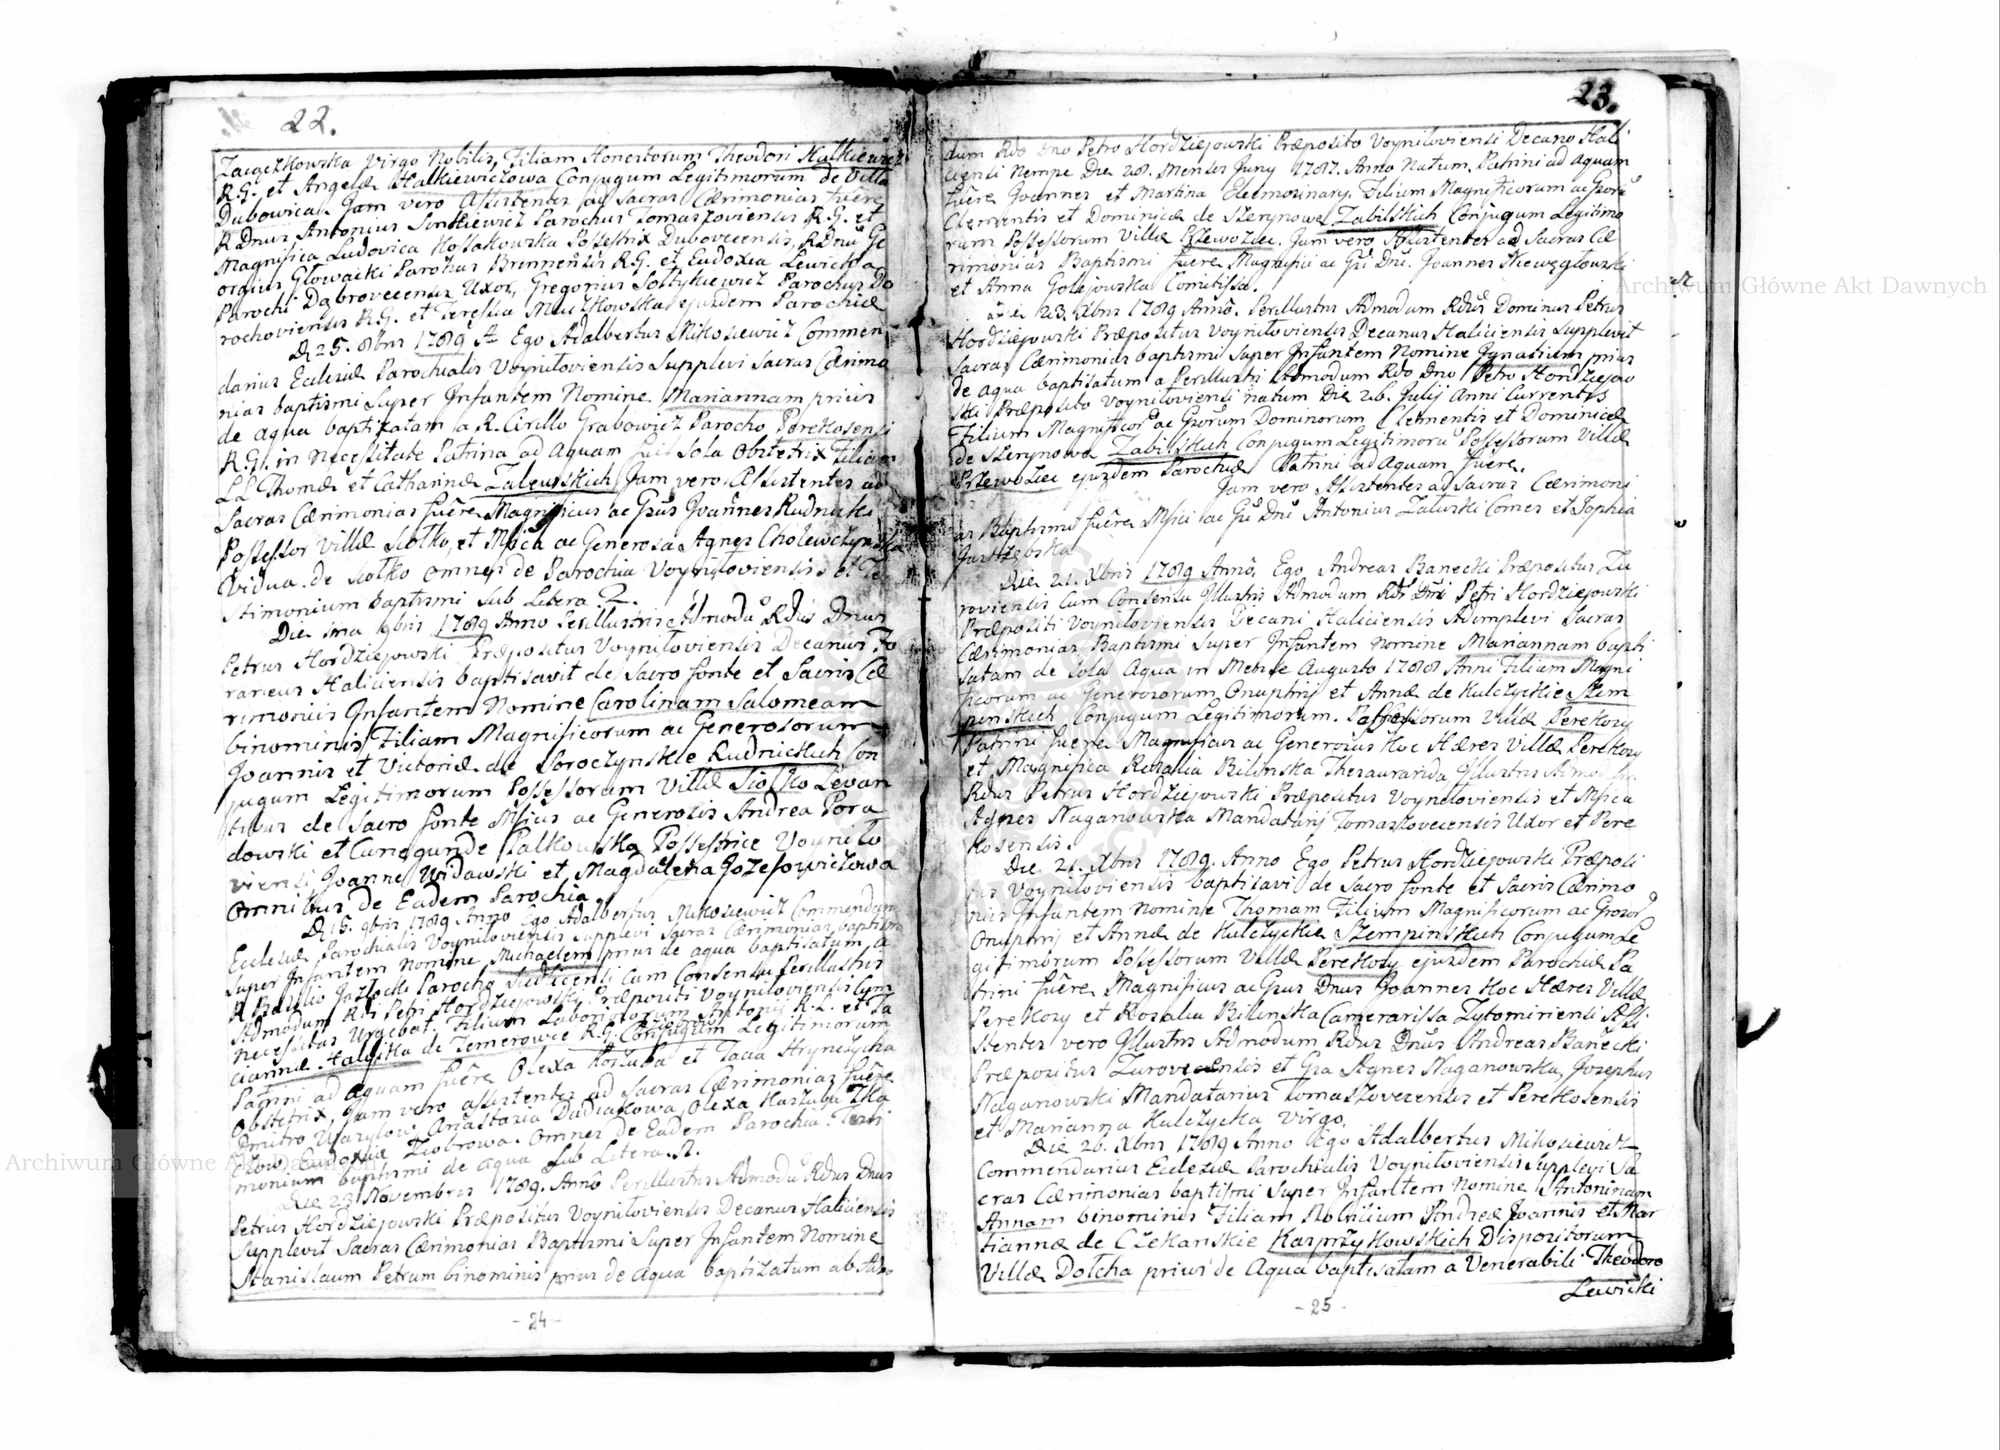 22.
Zacęzkowska Virgo Nobilis, Filiam Honestorum Theodori Halkiewicz
R.G. et Angelæ Halkiewiczowa Conjugum Legitimorum de Villa
Dubowica. Jam vero Assistentes ad Sacras Cærimonias fuêre
RDnus Antonius Parochus Tomaszoviensis R.G. et
Magnifica Ludovica Kossakowska Possestrix Dubovecensis, RDnus Ge
orgius Głowacki Parochus R.G. et Eudoxia Lewicka
Parochi Dąbrovecensis Uxor, Gregorius Sołtykiewicz Parochus Do
rochoviensis R.G. et Teressia Muczkowska ejusdem Parochiæ
D 25. 8bris 1789 A Ego Adalbertus Mikosiewicz Commen
darius Ecclesiæ Parochialis Voyniłoviensis Supplevi Sacras Cærimo
nias baptismi Super Infantem Nomine Mariannam prius
de aqua baptizatam a R. Cirillo Grabowicz Parocho Perekosensi
R.G. in Necessitate Patrina ad Aquam fuit Sola Obstetrix Filiam
LL Thomæ et Catharinæ Zaleuskich Jam vero Assistentes ad
Sacras Cærimonias fuêre Magnificus ac Gsus Joannes Rudnicki
Possessor Villæ Siołko, et Mfica ac Generosa Agnes Cholewczynska
Vidua de Siołko omnes de Parochia Voyniłoviensis et Te
stimonium baptismi Sub Litera Q.
Die 1ma 9bris 1789 Anno Perillustris Admodu Rdus Dnus
Petrus Hordziejowski Præpositus Voyniłoviensis Decanus Fo
raneus Haliciensis baptisavit de Sacro fonte et Sacris Cæ
rimoniis Infantem Nomine Carolinam Salomeam
binominis Filiam Magnificorum ac Generosorum
Joannis et Victoriæ de Soroczynskie Rudnickich Con
jugum Legitimorum Possessorum Villæ Siołko Levan
tibus de Sacro fonte Mficus ac Generosis Andrea Pora
dowski et Cunegunde Palkowska Possestrice Voyniło
viensi Joanne Widawski et Magdalena Jozefowiczowa
Omnibus de Eadem Parochia
D 15. 9bris 1789 Anno Ego Adalbertus Mikosiewicz Commendarius
Ecclesiæ Parochialis Voyniłoviensis Supplevi Sacras Cærimonias baptismi
Super Infantem Nomine Michaelem prius de aqua baptisatum, a
R Basilio Jazłocki Parocho Siwcensi Cum Consensu Perillustris
Admodum Rdi Petri Hordziejowski Præpositi Voyniłoviensis Cum
Necessitas Urgebat. Filium Laboriosorum Antonij R.L. et Ta
cianna Halułka de Temerowce R.G. Conjugum Legitimorum
Patrini ad aquam fuêre Olexa Koszuba et Tacia Hrynczycha
Obstetrix, Jam vero assistentes ad Sacras Cærimonias fuêre
Dmitro Wasylow Anastazia Dudiakowa, Olexa Koszuba Ilka
Eudoxia Ziobrowa. Omnes de Eadem Parochia. Testi
monium baptismi de aqua Sub Litera R.
Die 23 Novembris 1789. Anno Perillustris Admodu Rdus Dnus
Petrus Hordziejowski Præpositus Voyniłoviensis Decanus Haliciensis
Supplevit Sacras Cærimonias Baptismi Super Infantem Nomine
Stanislaum Petrum binominis prius de aqua baptizatum ab Admo
- 24 -
23.
dum Rdo Dno Petro Hordziejowski Præposito Voyniłoviensi Decano Hali
ciensi Nempe Die 28. Mensis Juny 1787. Anno Natum. Patrini ad aquam
fuêre Joannes et Martina Eleemosinary. Filium Magnificorum ac Gsorum
Clementis et Dominicæ de Szerynowe Zabilskich Conjugum Legitimo
rum Possessorum Villæ Przewoziec. Jam vero Assistentes ad Sacras Cæ
rimonias Baptismi fuere Magnifici ac Gsi Dni. Joannes Niewęgłowski
et Anna Golejowska Comitissa.
Die 23. Xbris 1789 Anno. Perillustris Admodum Rdus Dominus Petrus
Hordziejowski Præpositus Voyniłoviensis Decanus Haliciensis Supplevit
Sacras Cærimonias baptismi Super Infantem Nomine Ignatium prius
de aqua baptisatum a Perillustri Admodum Rdo Dno Petro Hordziejow
ski Præposito Voyniłoviensi natum Die 26. Julij Anni Currentis
Filium Magnificor ac Gsorum Dominorum Clementis et Dominicæ
de Szerynowe Zabilskich Conjugum Legitimoru Possessorum Villæ
Przewoziec ejusdem Parochiæ Patrini ad Aquam fuere.
Jam vero Assistentes ad Sacras Cærimoni
as Baptismi fuêre Mfici ac Gsi Dni Antonius Załuski Comes et Sophia
Jastrzębska
Die 21. Xbris 1789 Anno, Ego Andreas Banecki Præpositus Zu
roviensis Cum Consensu Illustris Admodum Rdi Dni Petri Hordziejowski
Præpositi Voyniłoviensis Decani Haliciensis Adimplevi Sacras
Cærimonias Baptismi Super Infantem Nomine Mariannam bapti
satam de Sola Aqua in Mense Augusto 1788 Anni Filiam Magni
ficorum ac Generosorum Onuphrij et Annæ de Kulczyckie Szem
pinskich Conjugum Legitimorum. Possessorum Villæ Perekosy
Patrini fuere Magnificus ac Generosus Hoc Hæres Villæ Perekosy
et Magnifica Rozalia Bilinska Thesauranda, Illustris Admodum
Rdus Petrus Hordziejowski Præpositus Voyniłoviensis et Mfica
Agnes Naganowska Mandatarij Tomaszovecensis Uxor et Pere
kosensis.
Die 21. Xbris 1789. Anno Ego Petrus Hordziejowski Præposi
tus Voyniłoviensis baptisavi de Sacro fonte et Sacris Cærimo
niis Infantem Nomine Thomam Filium Magnificorum ac Gsoror
Onuphrij et Annæ de Kulczyckie Szempinskich Conjugum Le
gitimorum Possessorum Villæ Perekosy ejusdem Parochiæ Pa
trini fuêre Magnificus ac Gsus Dnus Joannes Hoc Hæres Villæ
Perekosy et Rosalia Bilinska Camerarissa Zytomiriensi Assi
stentes vero Illustris Admodum Rdus Dnus Andreas Banecki
Præpositus Zurovecensis et Gsa Agnes Naganowska, Josephus
Naganowski Mandatarius Tomaszovecensis et Perekosensis
et Marianna Kulczycka Virgo.
Die 26. Xbris 1789 Anno Ego Adalbertus Mikosiewicz
Commendarius Ecclesiæ Parochialis Voyniłoviensis Supplevi Sa
cras Cærimonias baptismi Super Infantem Nomine Antoninam
Annam binominis Filiam Nobilium Andreæ Joannis et Mar
tiannæ de Czekanskie Kasprzykowskich Dispositorum
Villæ Dołcha prius de Aqua baptisatam a Venerabili Theodoro
Lewicki
- 25 -
Archiwum Główne Akt Dawnych
Archiwum Główne Akt Dawnych